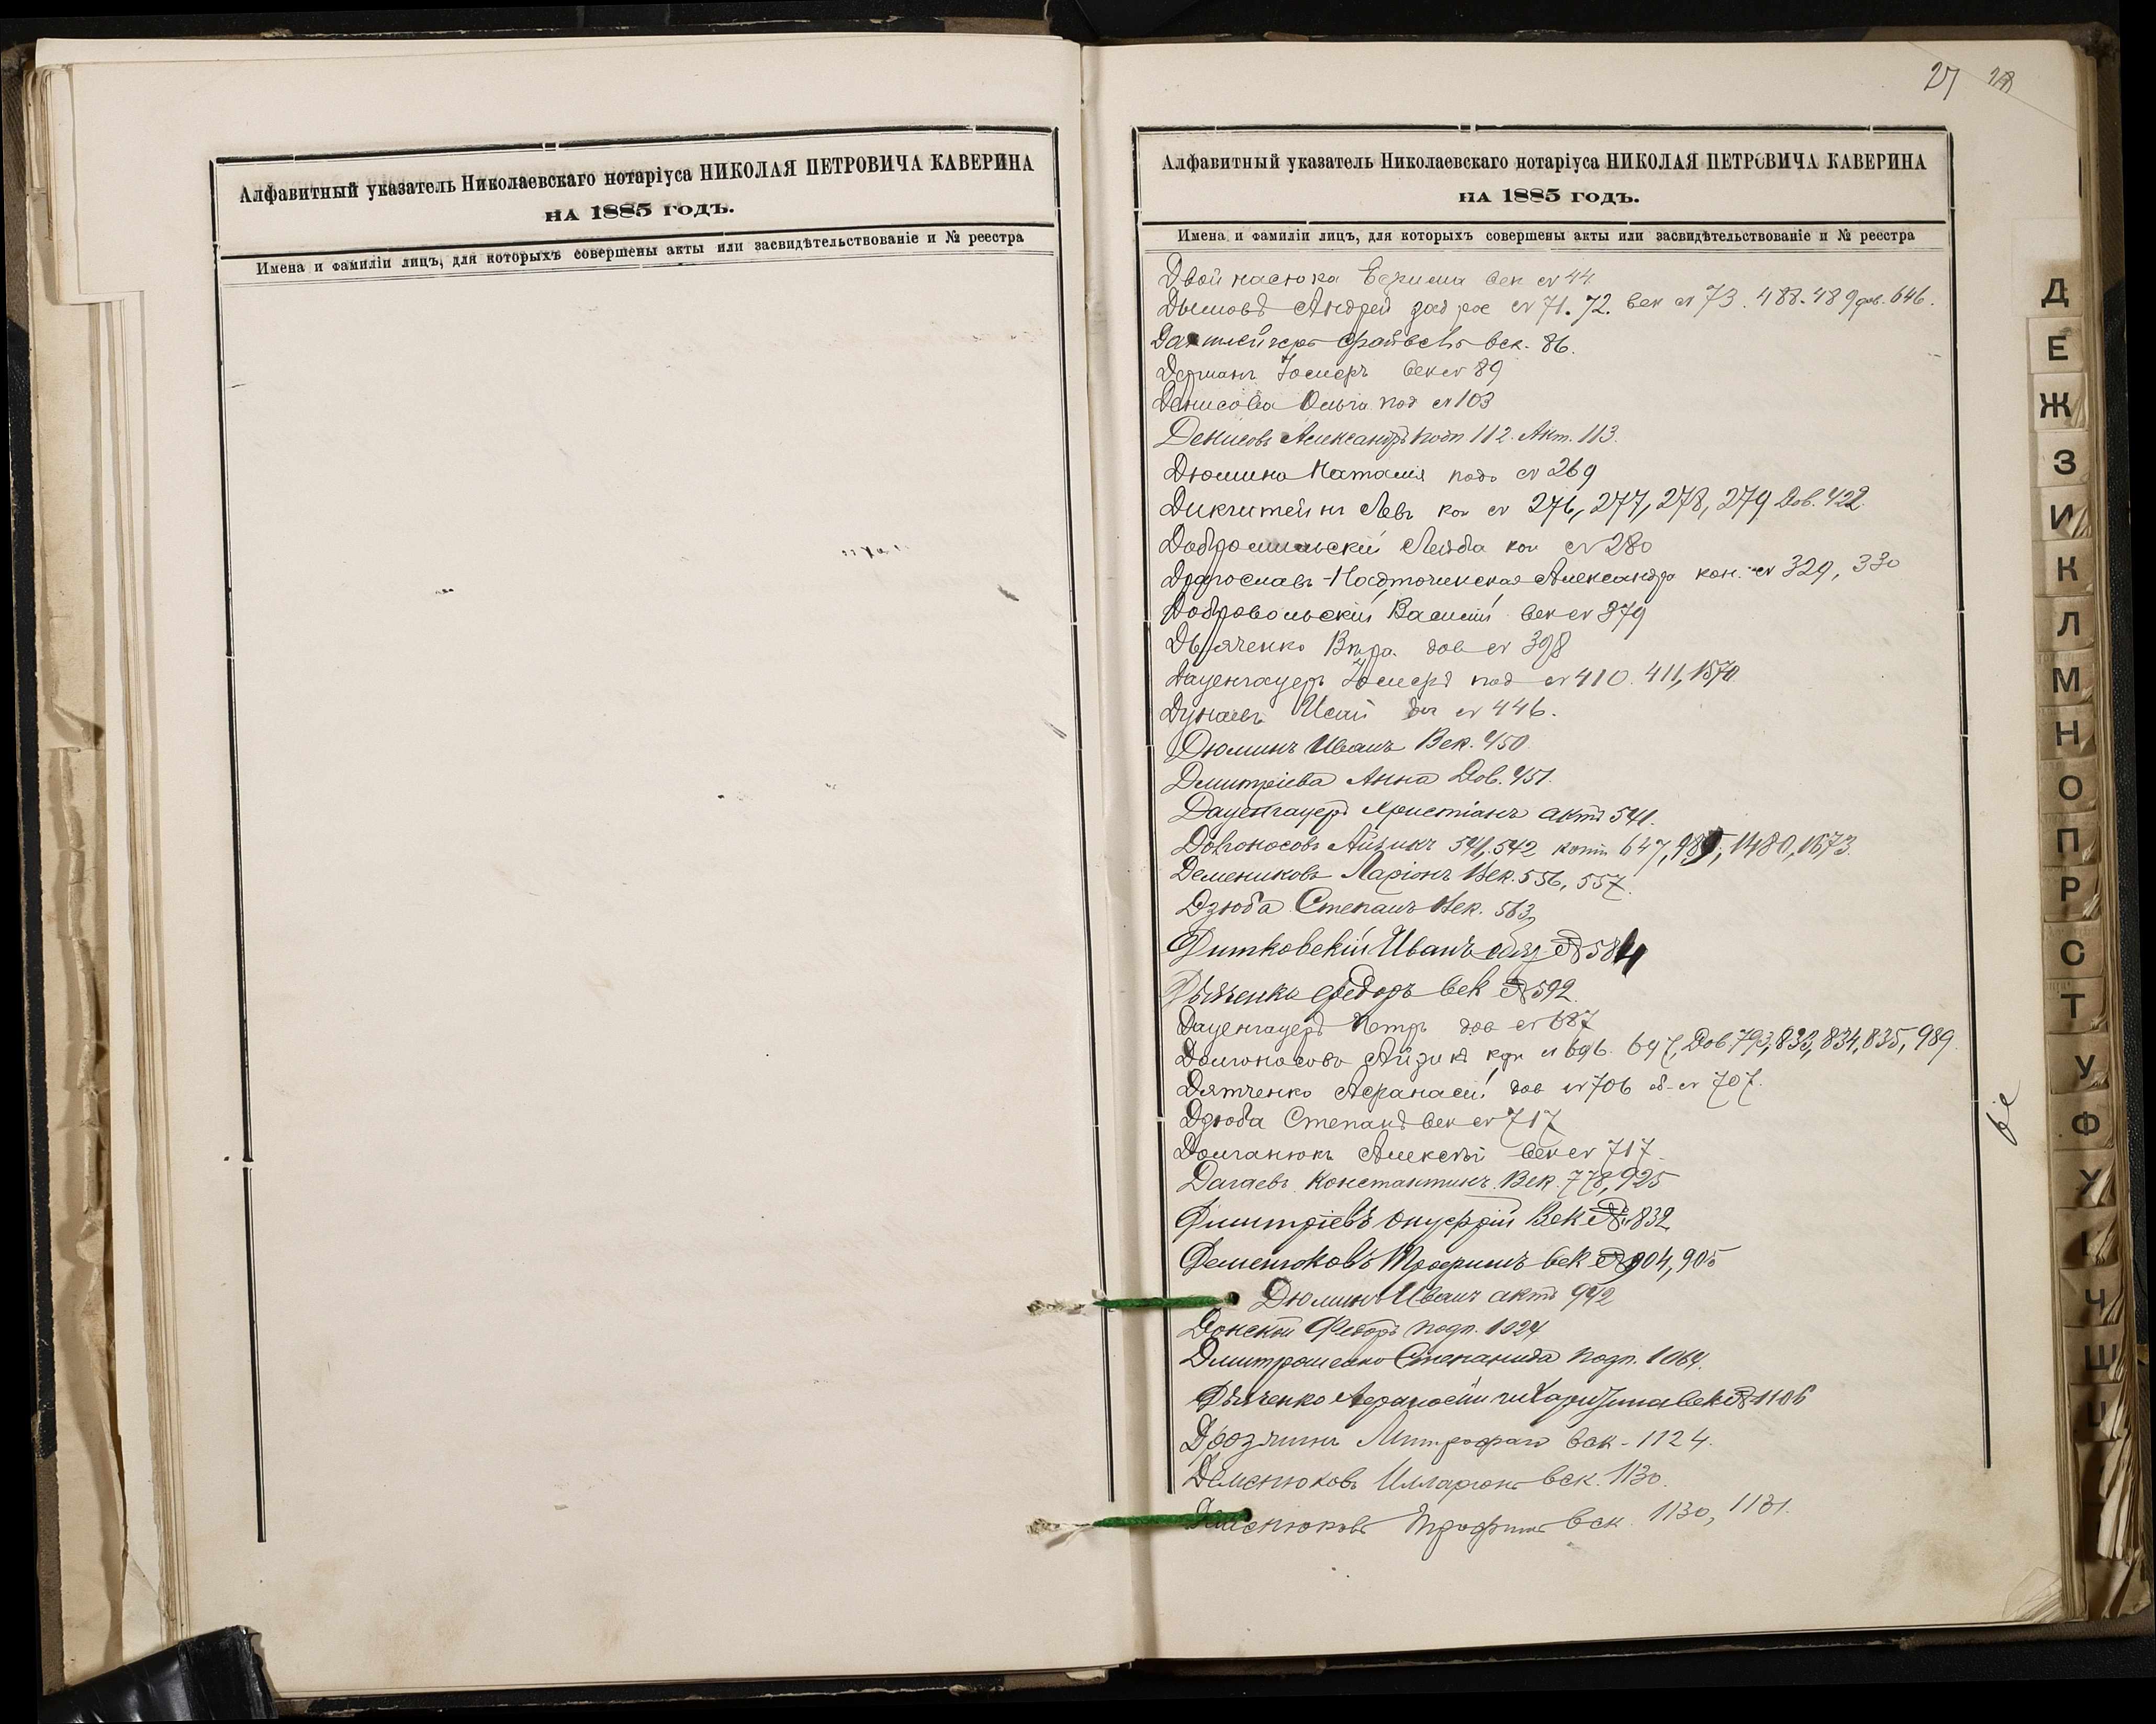 Алфавитный указатель Николаевскаго нотаріуса НИКОЛАЯ ПЕТРОВИЧА КАВЕРИНА
НА 1885 ГОДЪ.
Имена и фамиліи лицъ, для которыхъ совершены акты или засвидѣтельствованіе и № реестра
27 28
Алфавитный указатель Николаевскаго нотаріуса НИКОЛАЯ ПЕТРОВИЧА КАВЕРИНА
НА 1885 ГОДЪ.
Имена и фамиліи лицъ, для которыхъ совершены акты или засвидѣтельствованіе и № реестра
век № 44
Андрей № 71. 72. век № 73. 488. 489 дов. 646.
век. 86.
Іосифъ век № 89
Денисова Ольга под № 103
Денисовъ Александръ подп 112. Акт. 113.
Дюмина Наталия подп № 269
Левъ коп № 276, 277, 278, 279 Дов. 422.
Лейба коп № 280
Александра коп. № 329, 330
Добровольскій Василій век № 379
Дьяченко Вѣра дов № 398
Дауенгауеръ Іосифъ под № 410. 411, 1570
Дунаевъ Исай № 446.
Дюминъ Иванъ Век. 450.
Дмитріева Анна Дов. 451.
Дауенгауеръ Христіанъ актъ 541.
Долгоносовъ Айзикъ 541, 542 копіи 647, 1480, 1673.
Ларіонъ Век. 556, 557.
Дзюба Степанъ Век. 563
Дитковскій Иванъ № 584
Дьяченко Федоръ век № 592.
Дауенгауеръ Петръ дов № 687
Долгоносовъ Айзикъ коп № 696. 697, Дов 793, 833, 834, 835, 989.
Дятченко Афанасій дов № 706 № 707.
Дзюба Степанъ век № 717
Долганюкъ Алексѣй век № 717.
Дагаевъ Константинъ Век. 778, 925
Дмитріевъ Онуфрій Век № 832
Деменюковъ Трофимъ век № 904, 905
Дюминъ Иванъ актъ 942
Донской Федоръ подп. 1024
Дмитрошенко Степанида подп. 1064.
Дьяченко Афанасій век № 1106
Митрофанъ век. 1124.
Деменюковъ Илларіонъ век. 1130.
Деменюковъ Трофимъ век. 1130, 1131.
Д
Е
Ж
З
И
К
Л
М
Н
О
П
Р
С
Т
У
Ф
Х
Ц
Ч
Ш